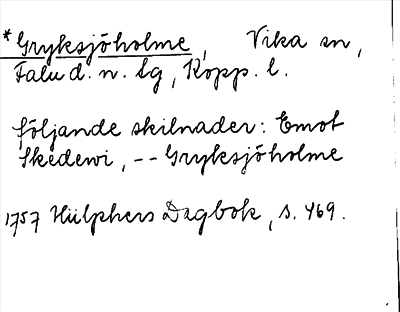 *Gryksjöholme, Vika sn,
Falu d. n. Lg, Kopp. l.
följande skilnader: Emot
Skedewi, -- Gryksjöholme
1757 Hülphers Dagbok, s. 469.